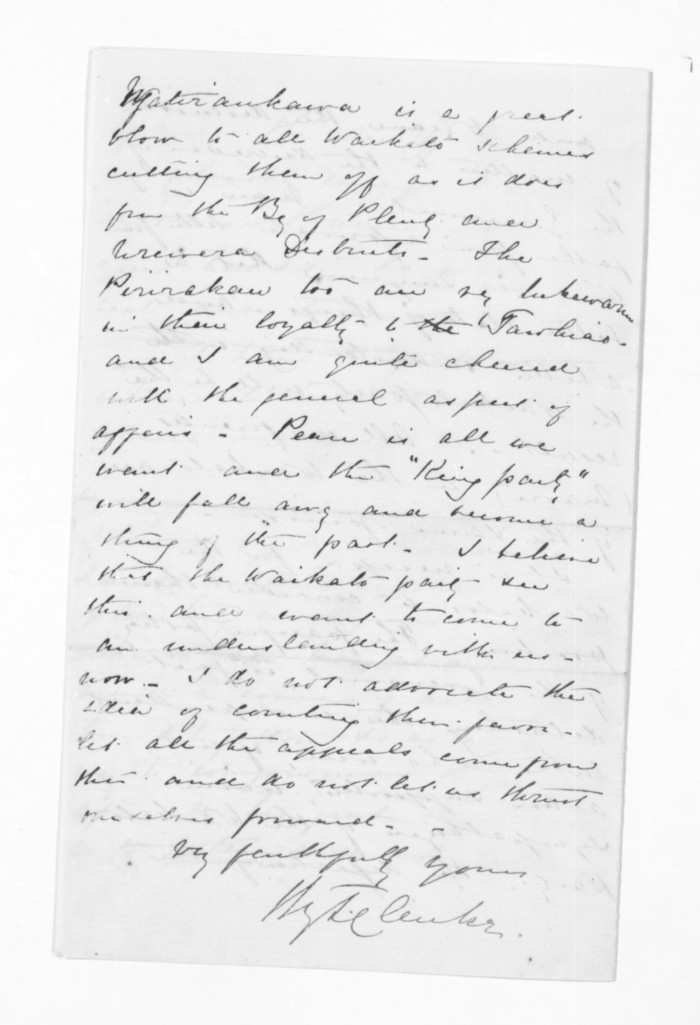 Ngatiraukawa is a great
blow to all Waikato schemes
cutting them off as it does
from the Bay of Plenty and
Urewera Districts - The
Pirirakau too are very lukewarm
in their loyalty to the Tawhiao -
and I am quite cheered
with the general aspect of
affairs - Peace is all we
want and the "King party"
will fall away and become a
thing of the past - I believe
that the Waikato party see
this and want to come to
an understanding with us -
now - I do not advocate the
idea of courting their favor -
let all the appeals come from
this and do not let us thrust
ourselves forward -
Very faithfully yours
Hy T Clarke